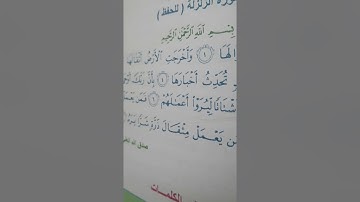 ورة الزلزلة (للحفظ)
بِسْمِ اللَّهِ الرَّحْمَٰنِ الرَّحِيمِ
الَهَا ۝١ وَأَخْرَجَتِ الْأَرْضُ أَثْقَالَهَا
تُحَدِّثُ أَخْبَارَهَا ۝٤ بِأَنَّ رَبَّكَ
أَشْتَاتًا لِّيُرَوْا أَعْمَالَهُمْ ۝٦ فَمَن يَعْمَلْ
مَن يَعْمَلْ مِثْقَالَ ذَرَّةٍ شَرًّا يَرَهُ
صدق الله
الكلمات